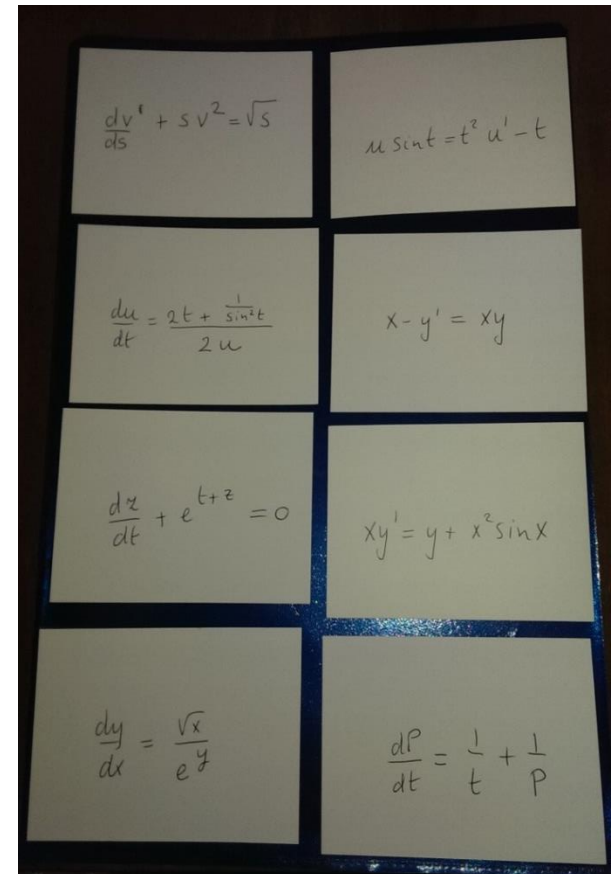 dv'/ds + sv² = √s
u sint = t² u' - t
du/dt = (2t + 1/sin²t)/2u
x - y' = xy
dz/dt + e^(t+z) = 0
xy' = y + x² sinx
dy/dx = √x/e^y
dP/dt = 1/t + 1/P